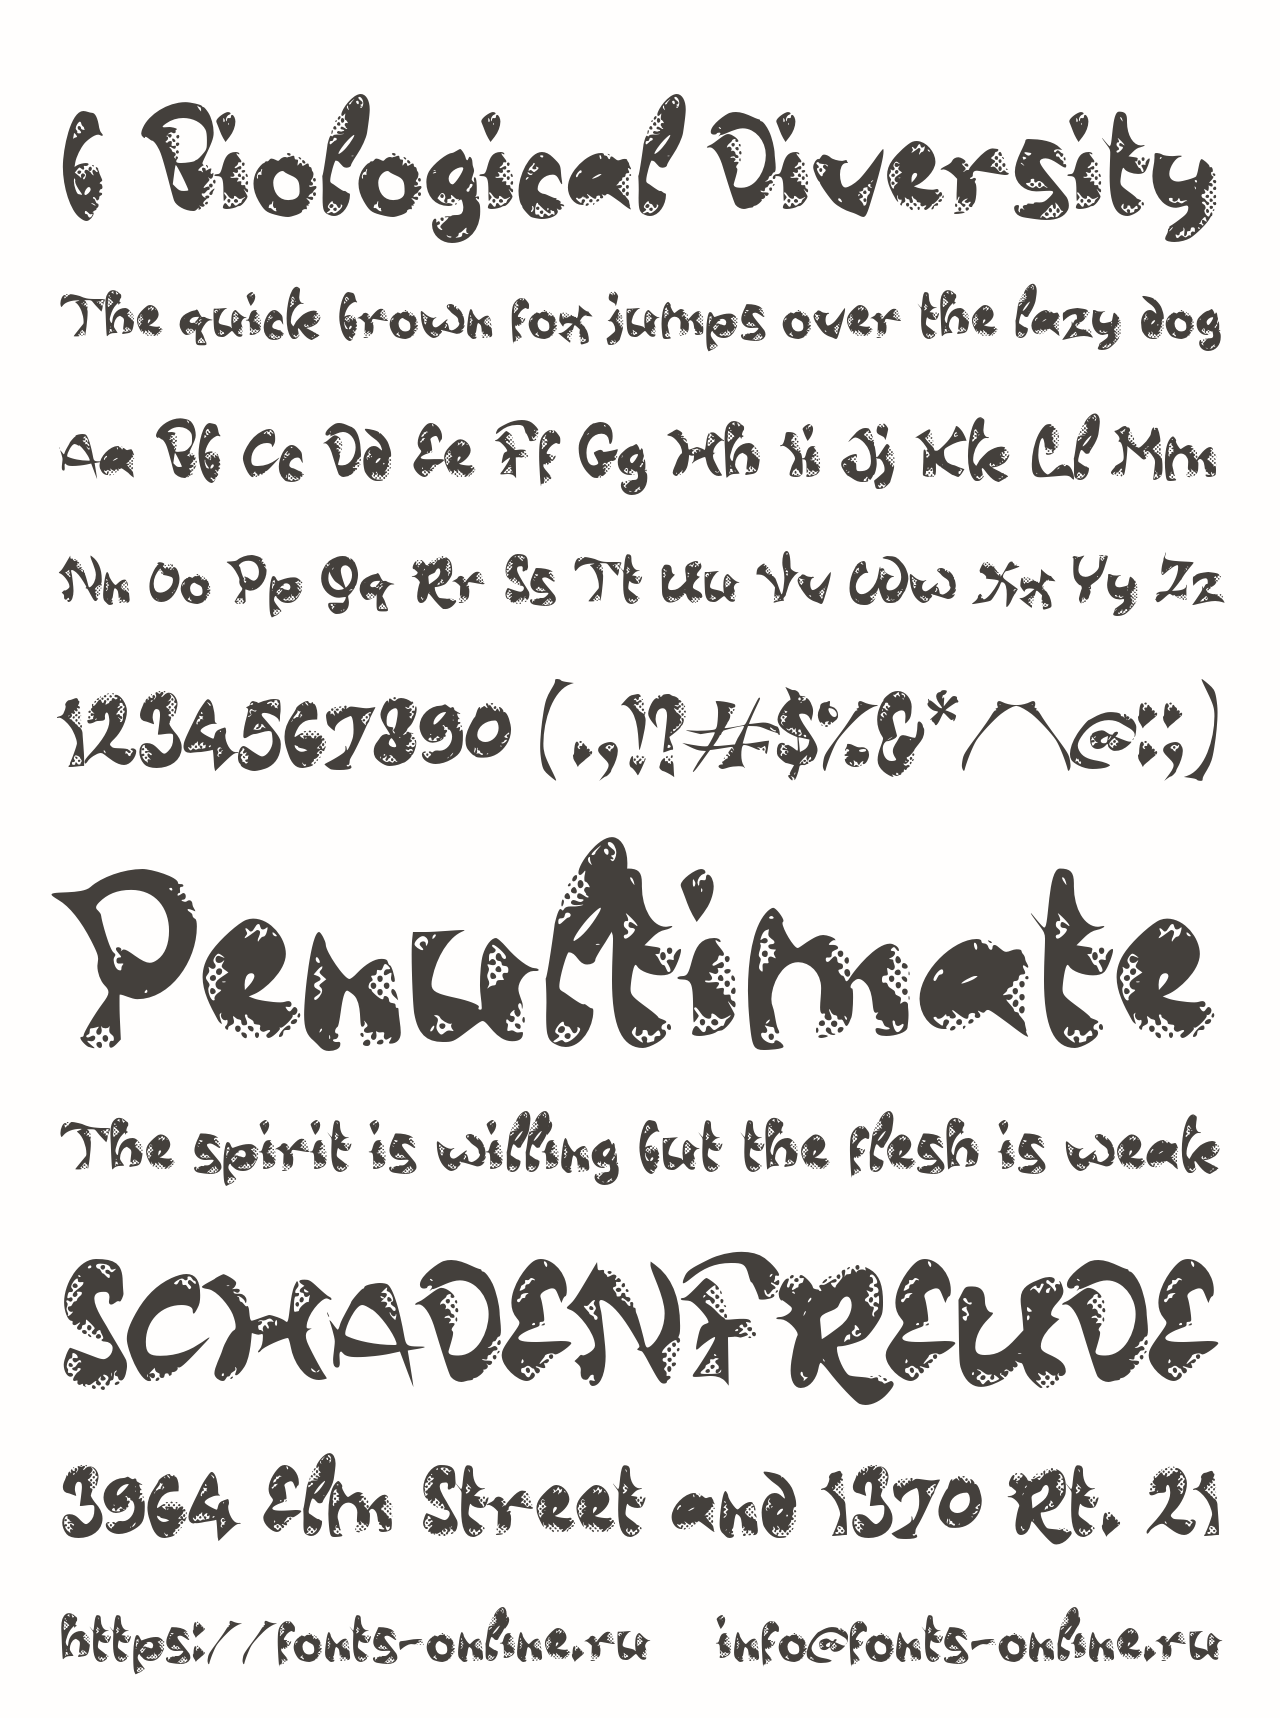 6 Biological Diversity
The quick brown fox jumps over the lazy dog
Aa Bb Cc Dd Ee Ff Gg Hh Ii Jj Kk Ll Mm
Nn Oo Pp Qq Rr Ss Tt Uu Vv Ww Xx Yy Zz
1234567890 (.,!?#$%&*/\@:;)
Penultimate
The spirit is willing but the flesh is weak
SCHADENFREUDE
3964 Elm Street and 1370 Rt. 21
https://fonts-online.ru info@fonts-online.ru